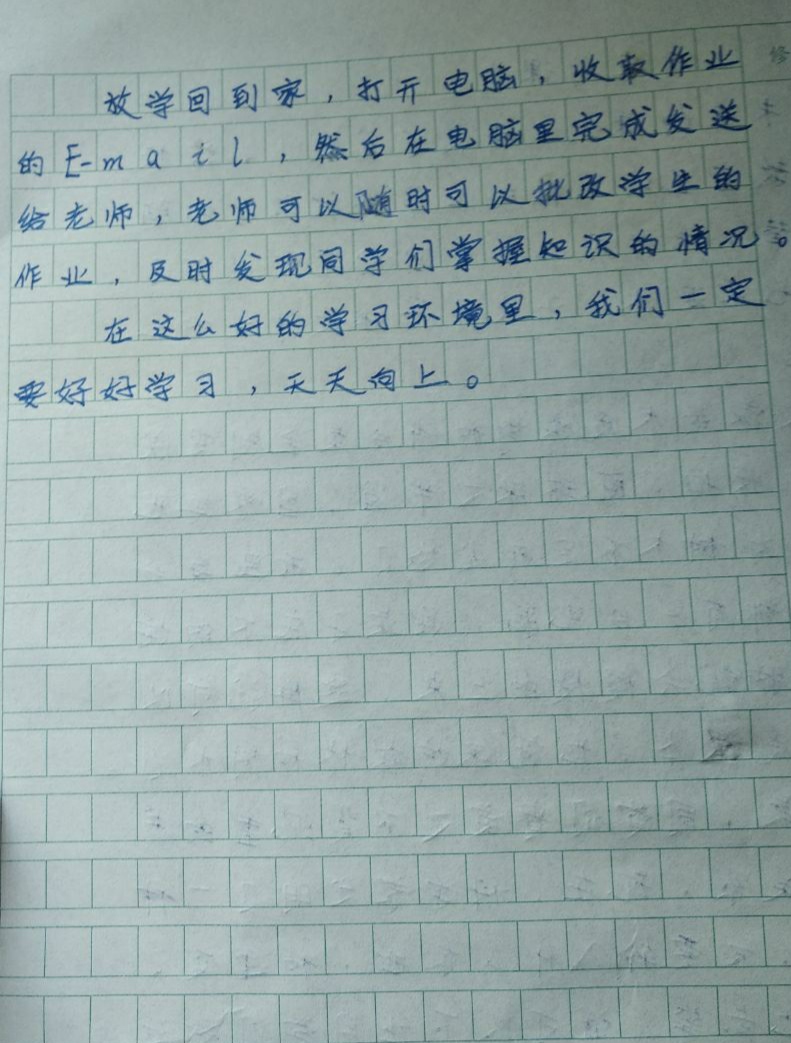 放学回到家，打开电脑，收取作业
的E-mail，然后在电脑里完成发送
给老师，老师可以随时可以批改学生的
作业，及时发现同学们掌握知识的情况。
在这么好的学习环境里，我们一定
要好好学习，天天向上。